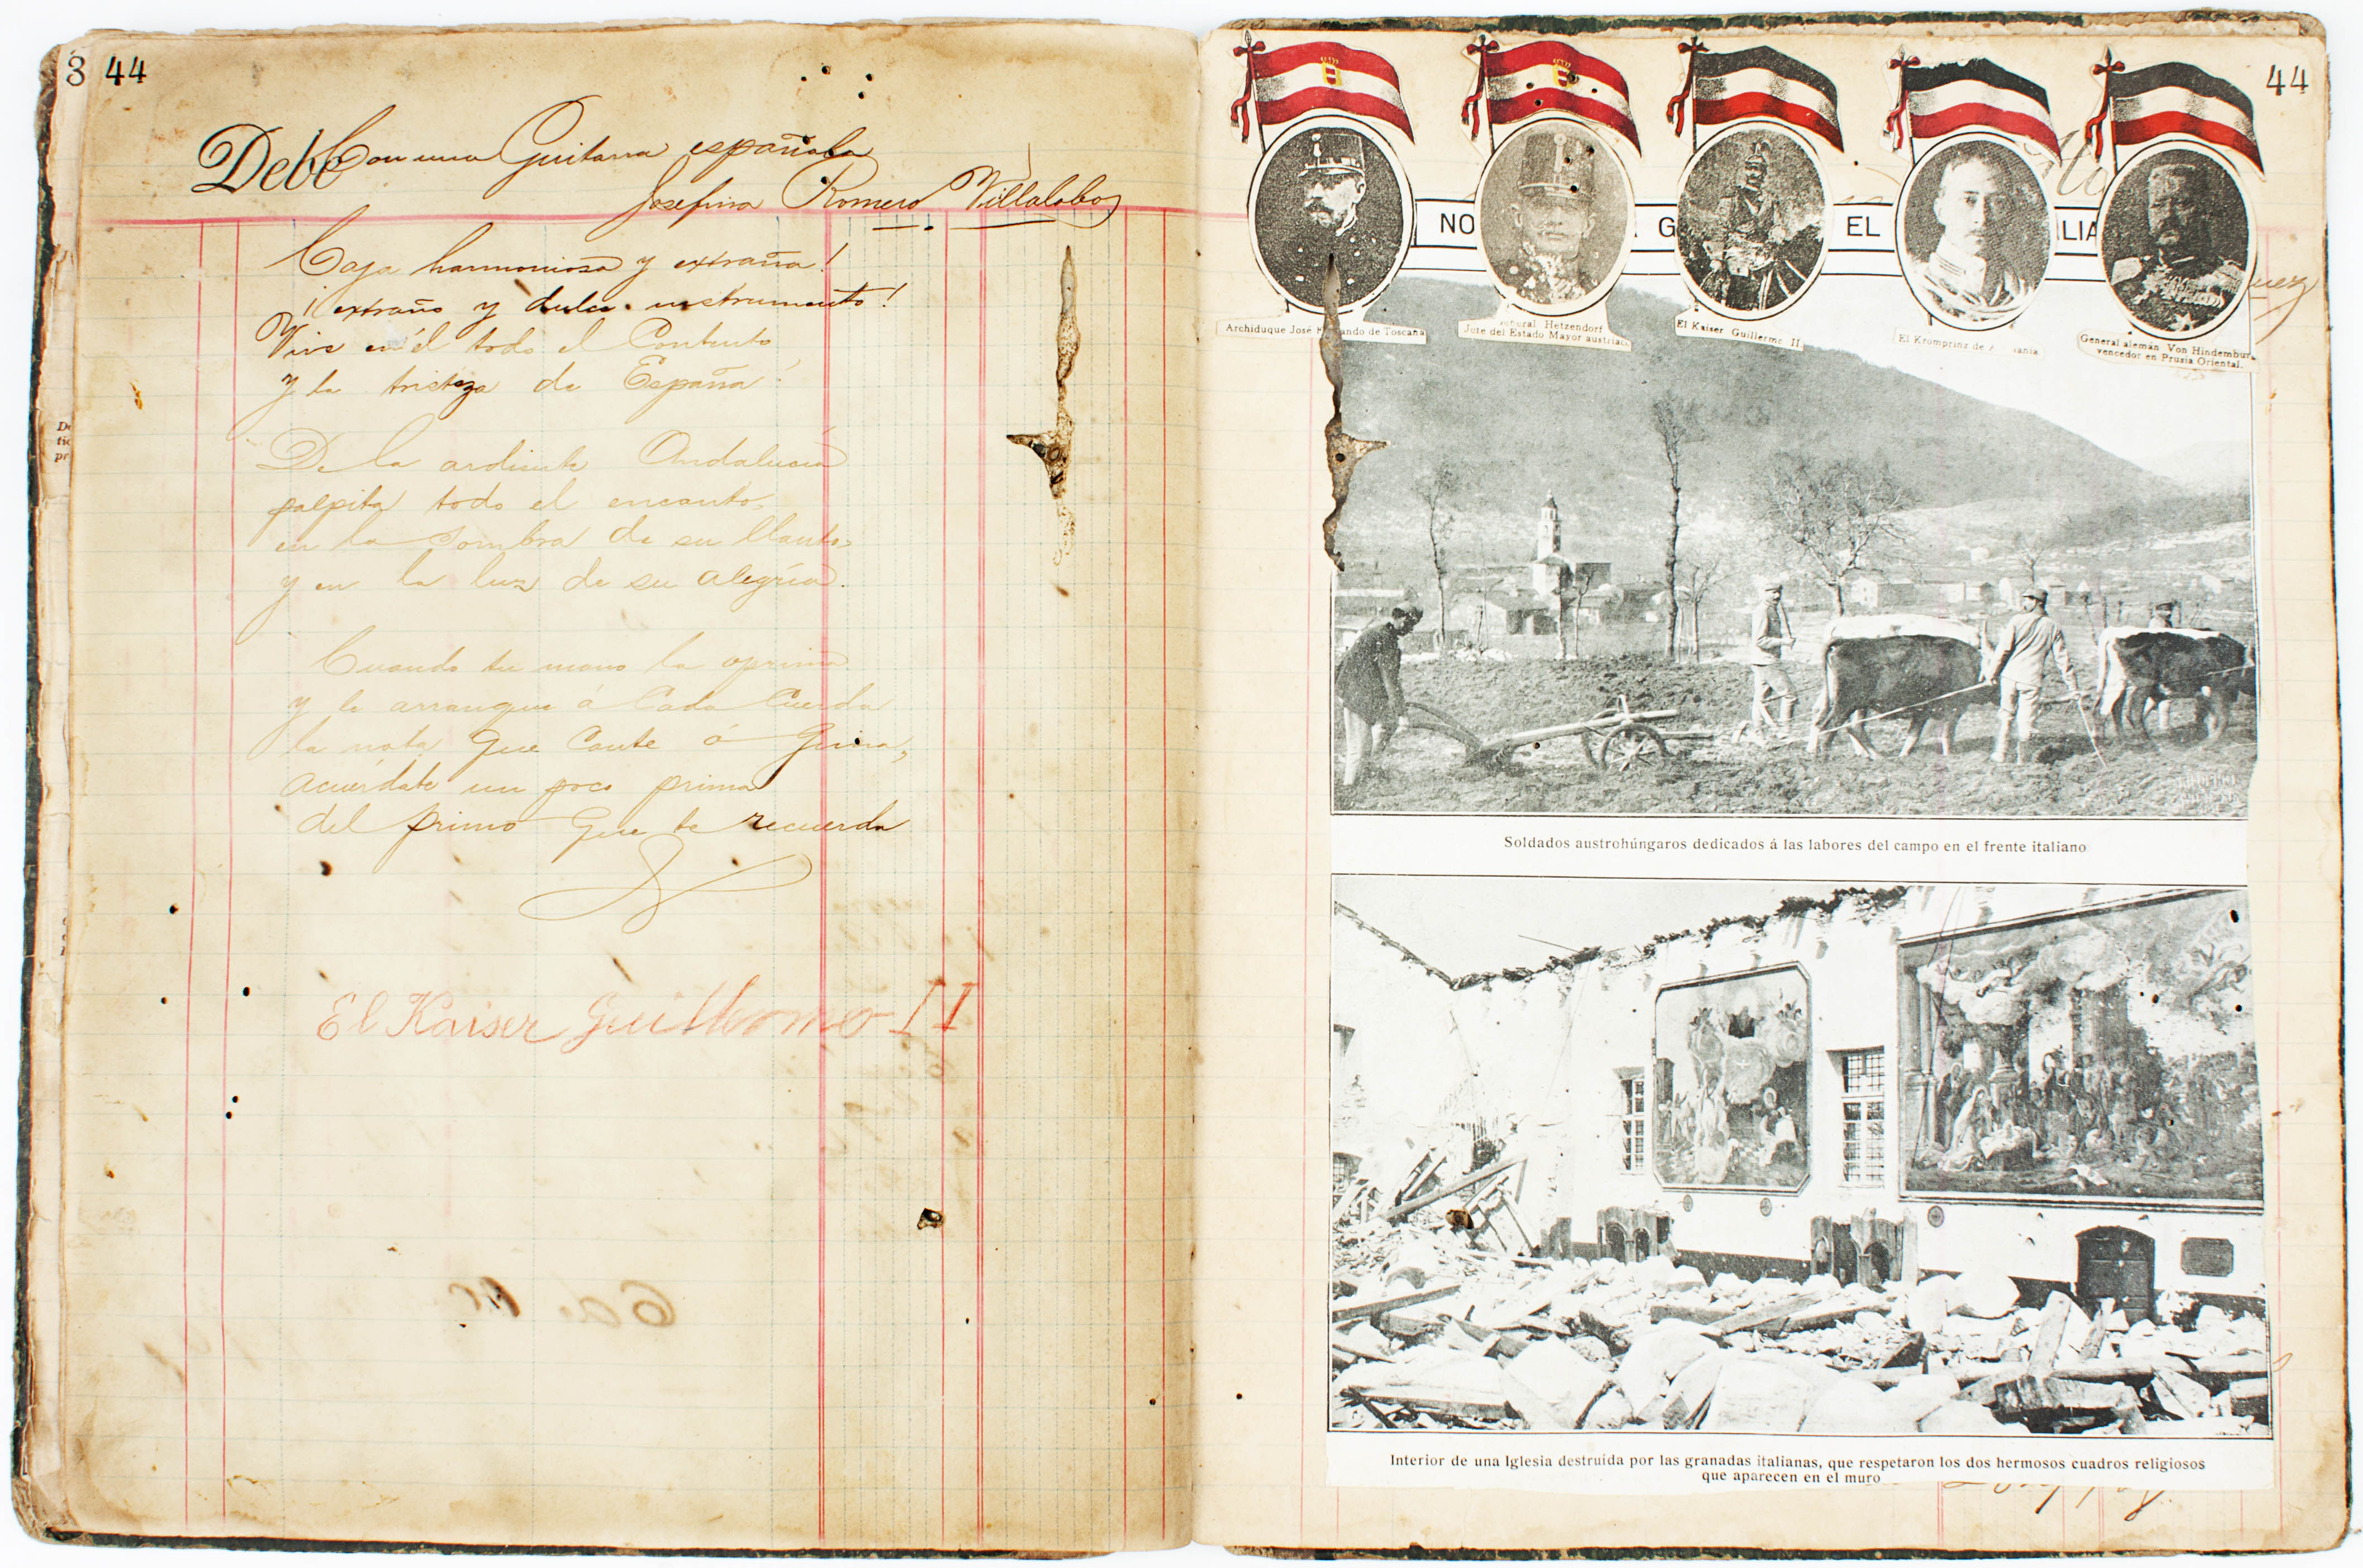 3 44
Debe
Con una Guitarra española
Josefina Romero Villalobos
Caja harmoniosa y extraña!
¡extraño y dulce instrumento!
Vive en él todo el Contento
y la tristeza de España!
De la ardiente Andalucía
palpita todo el encanto,
en la sombra de su llanto
y en la luz de su alegría.
Cuando tu mano la oprima
y le arranque á Cada Cuerda
la nota que Cante ó Gima,
acuérdate un poco prima
del primo que te recuerda
El Kaiser Guillermo II
44
NO G EL LIA
Archiduque José F ando de Toscana
eneral Hetzendorf
Jefe del Estado Mayor austriac
El Kaiser Guillermo II
El Kromprinz de A ania
General alemán Von Hindemburg
vencedor en Prusia Oriental.
Soldados austrohúngaros dedicados á las labores del campo en el frente italiano
Interior de una Iglesia destruída por las granadas italianas, que respetaron los dos hermosos cuadros religiosos
que aparecen en el muro